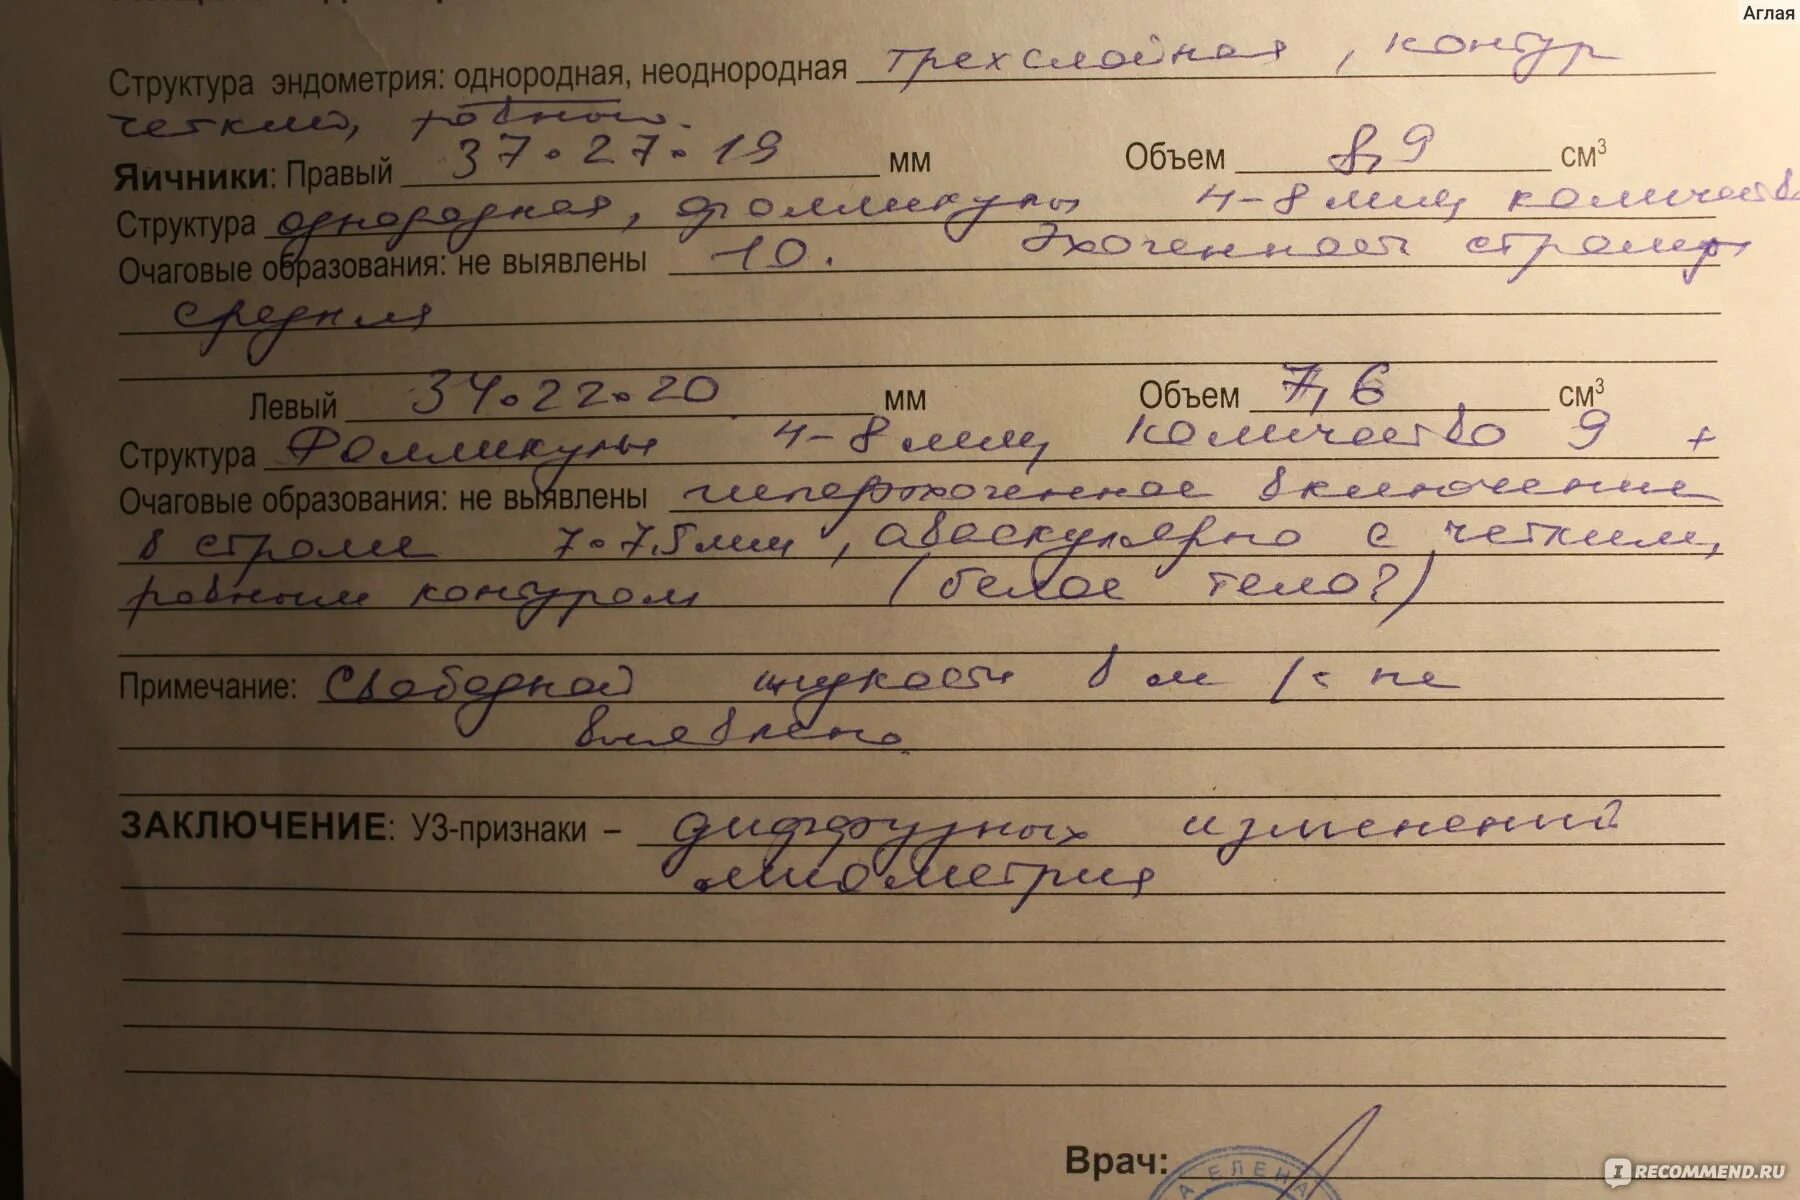 Аглая
Структура эндометрия: однородная, неоднородная трехслойная, контур
четкий, ровный.
Яичники: Правый 37•27•19 мм Объем 8,9 см³
Структура однородная, фолликулы 4-8 мм, количество
Очаговые образования: не выявлены 10. Эхогенность стромы
средняя
Левый 34•22•20 мм Объем 7,6 см³
Структура Фолликулы 4-8 мм, количество 9 +
Очаговые образования: не выявлены гиперэхогенное включение
в строме 7•7,5 мм, аваскулярно с четким,
ровным контуром (белое тело?)
Примечание: Свободной жидкости в м/т не
выявлено
ЗАКЛЮЧЕНИЕ: УЗ-признаки – диффузных изменений
миометрия
Врач:
ЕЛЕНА
IRECOMMEND.RU